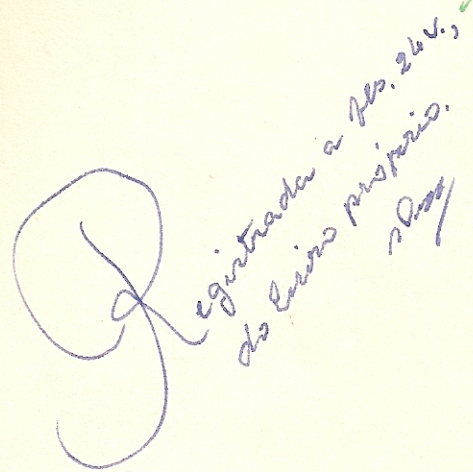 Registrada a fls. 24v.,
do Livro próprio.